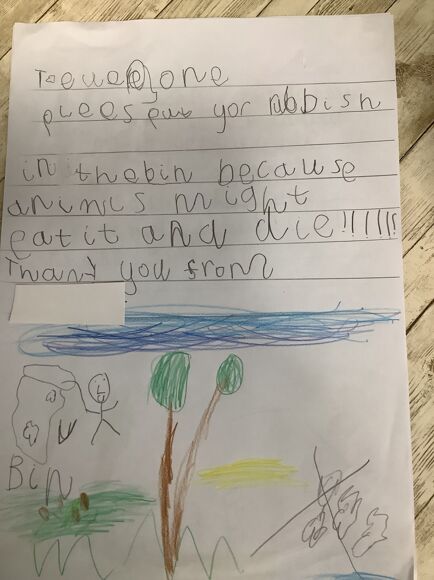 To everyone
plees put yor rubbish
in thebin because
animls might
eat it and die!!!!!!
Thany you from
Bin